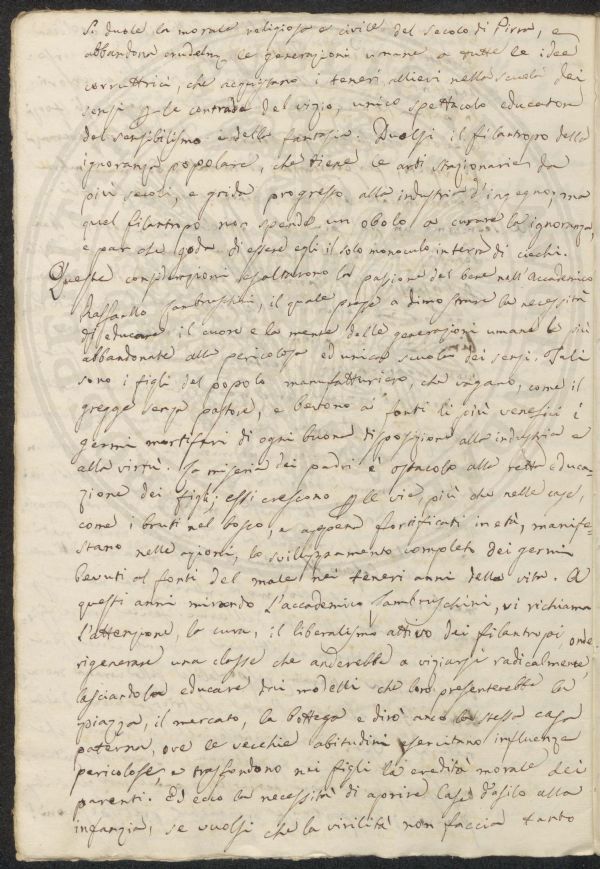 Si duole la morale religiosa e civile del secolo di Pirra, e
abbandona crudelm. le generazioni umane a tutte le idee
corruttrici, che acquistano i teneri allievi nella scuola dei
sensi p le contrade del vizio, unico spettacolo educatore
del sensibilismo e della fantasia. Duolsi il filantropo della
ignoranza popolare, che tiene le arti stazionarie da
più secoli, e grida progresso alla industria d'ingegno, ma
quel filantropo non spende un obolo a curare la ignoranza,
e par che goda di essere egli il solo monocolo in terra di ciechi.
Queste considerazioni esaltarono la passione del bene nell'Accademico
Raffaello Lambruschini, il quale prese a dimostrare la necessità
di educare il cuore e la mente delle generazioni umane le più
abbandonate alla pericolosa ed unica scuola dei sensi. Tali
sono i figli del popolo manufatturiero, che vagano, come il
gregge senza pastore, e bevono ai fonti li più venefici i
germi mortiferi di ogni buona disposizione alla industria e
alla virtù. La miseria dei padri è ostacolo alla retta educa-
zione dei figli; essi crescono p le vie, più che nelle case,
come i bruti nel bosco, e appena fortificati in età, manife-
stano nelle azioni, lo sviluppamento completo dei germi
bevuti al fonti del male nei teneri anni della vita. A
questi anni mirando l'accademico Lambruschini, vi richiama
l'attenzione, la cura, il liberalismo attivo dei filantropi, onde
rigenerare una classe che anderebbe a viziarsi radicalmente,
lasciandola educare dai modelli che loro presenterebbe la
piazza, il mercato, la bottega e dirò anco la stessa casa
paterna, ove le vecchie abitudini esercitano influenza
pericolose, e trasfondono nei figli la eredità morale dei
parenti. Ed ecco la necessità di aprire Case d'asilo alla
infanzia, se vuolsi che la virilità non faccia tanto